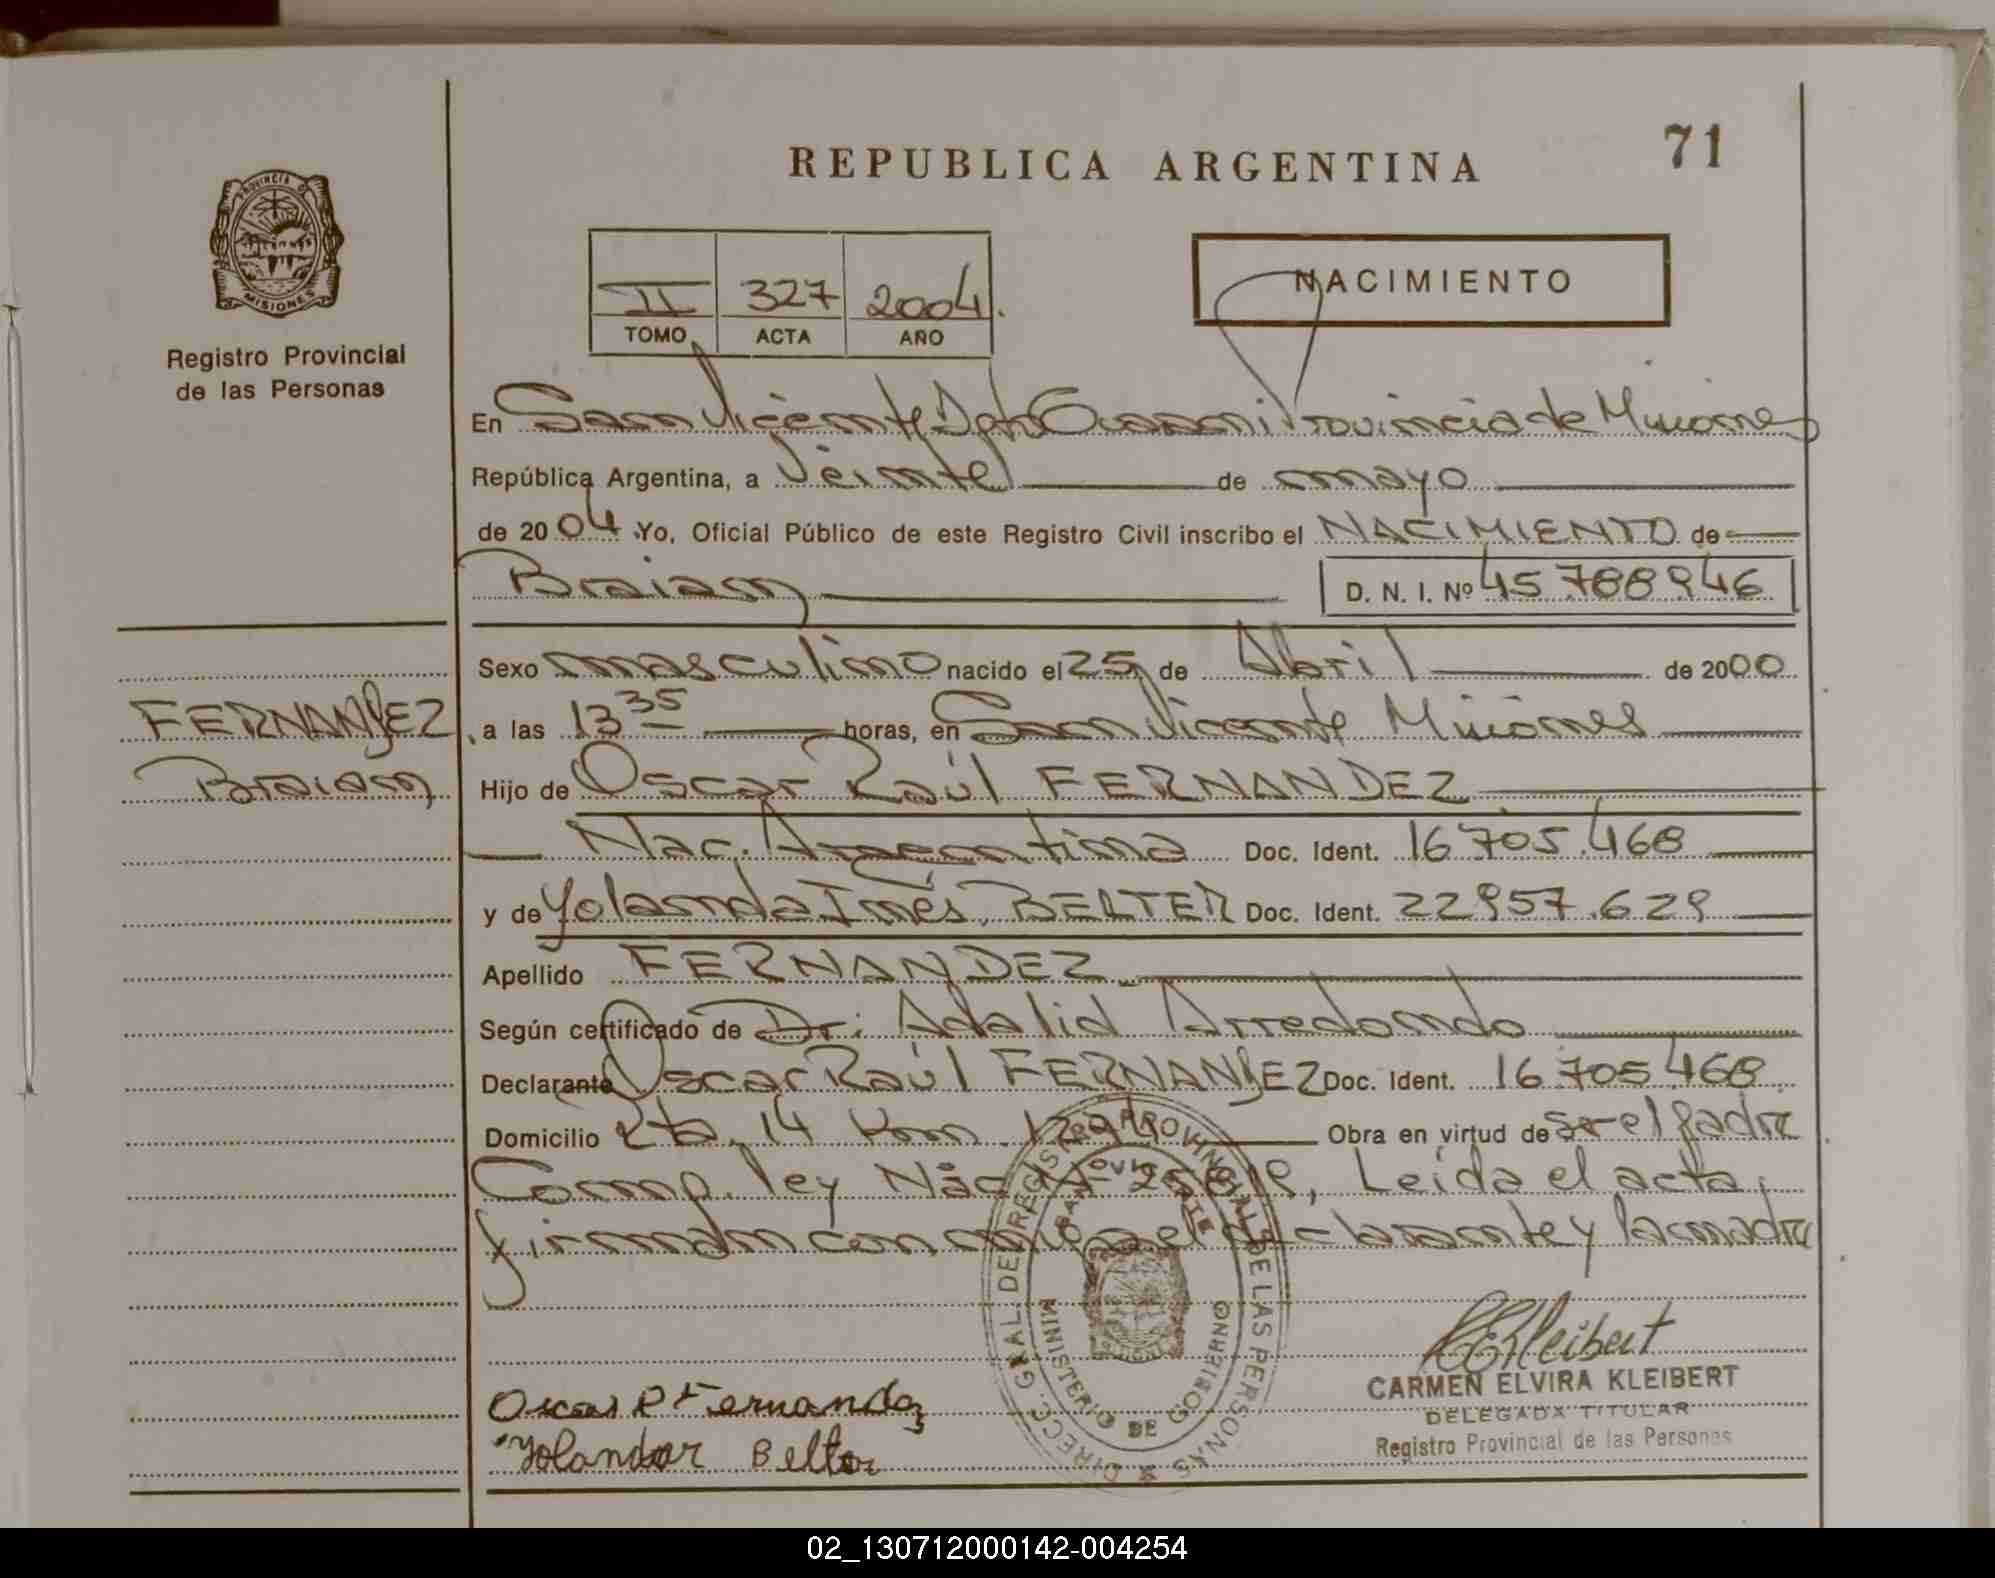 REPUBLICA ARGENTINA
71
PROVINCIA DE
MISIONES
Registro Provincial
de las Personas
II 327 2004.
TOMO ACTA AÑO
NACIMIENTO
En San Vicente Dpto Guaraní Provincia de Misiones
República Argentina, a Veinte de mayo
de 2004 Yo, Oficial Público de este Registro Civil inscribo el NACIMIENTO de
Braian
D. N. I. Nº 45 788 946
Sexo masculino nacido el 25 de Abril de 2000
FERNANDEZ
Braian
a las 13 35 horas, en San Vicente Misiones
Hijo de Oscar Raúl FERNANDEZ
Nac. Argentina Doc. Ident. 16 705.468
y de Yolanda Inés BELTER Doc. Ident. 22957.629
Apellido FERNANDEZ
Según certificado de Dr. Adalid Arredondo
Declarante Oscar Raúl FERNANDEZ Doc. Ident. 16 705 468
Domicilio Rta. 14 Km. Obra en virtud de ser el padre
Comp. ley Nac Nº Leída el acta,
firman con migo el declarante y la madre
DIRECC. GRAL. DE REGISTRO PROVINCIAL DE LAS PERSONAS
MINISTERIO DE GOBIERNO
CARMEN ELVIRA KLEIBERT
DELEGADA TITULAR
Registro Provincial de las Personas
Oscar R Fernandez
Yolanda Belter
02_130712000142-004254